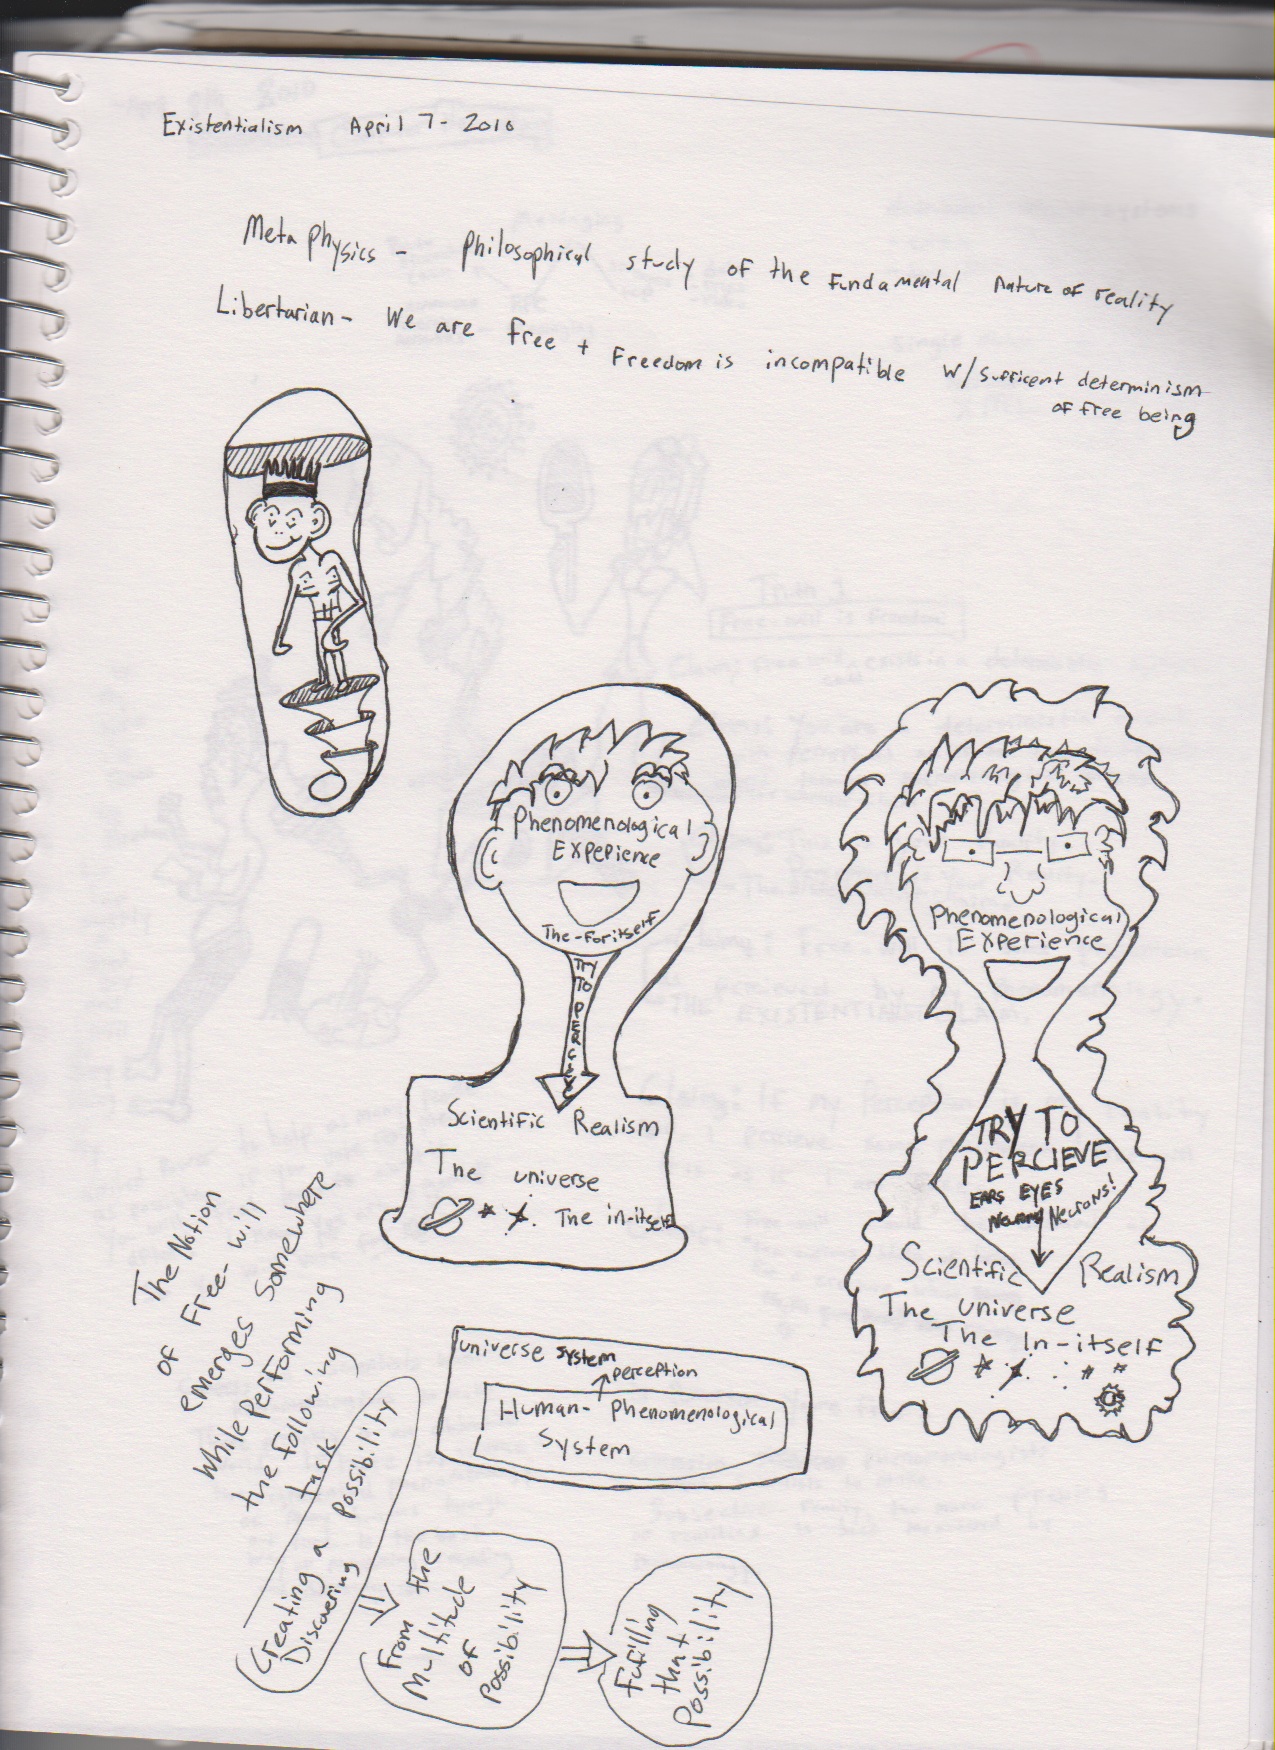 Existentialism April 7- 2010
Metaphysics - Philosophical study of the fundamental nature of reality
Libertarian - We are free + Freedom is incompatible w/ sufficent determinism
of free being
Phenomenological
Experience
The-Foritself
TRY TO PERCIEVE
Scientific Realism
The universe
The in-itself
Phenomenological
Experience
TRY TO
PERCIEVE
EARS EYES
Neurons!
Scientific Realism
The universe
The In-itself
universe system
perception
Human- Phenomenological
System
The Notion
of Free-will
emerges Somewhere
While Performing
the following
task
Creating a possibility
Discovering
From the
Multitude
of
Possibility
Fufilling
that
Possibility